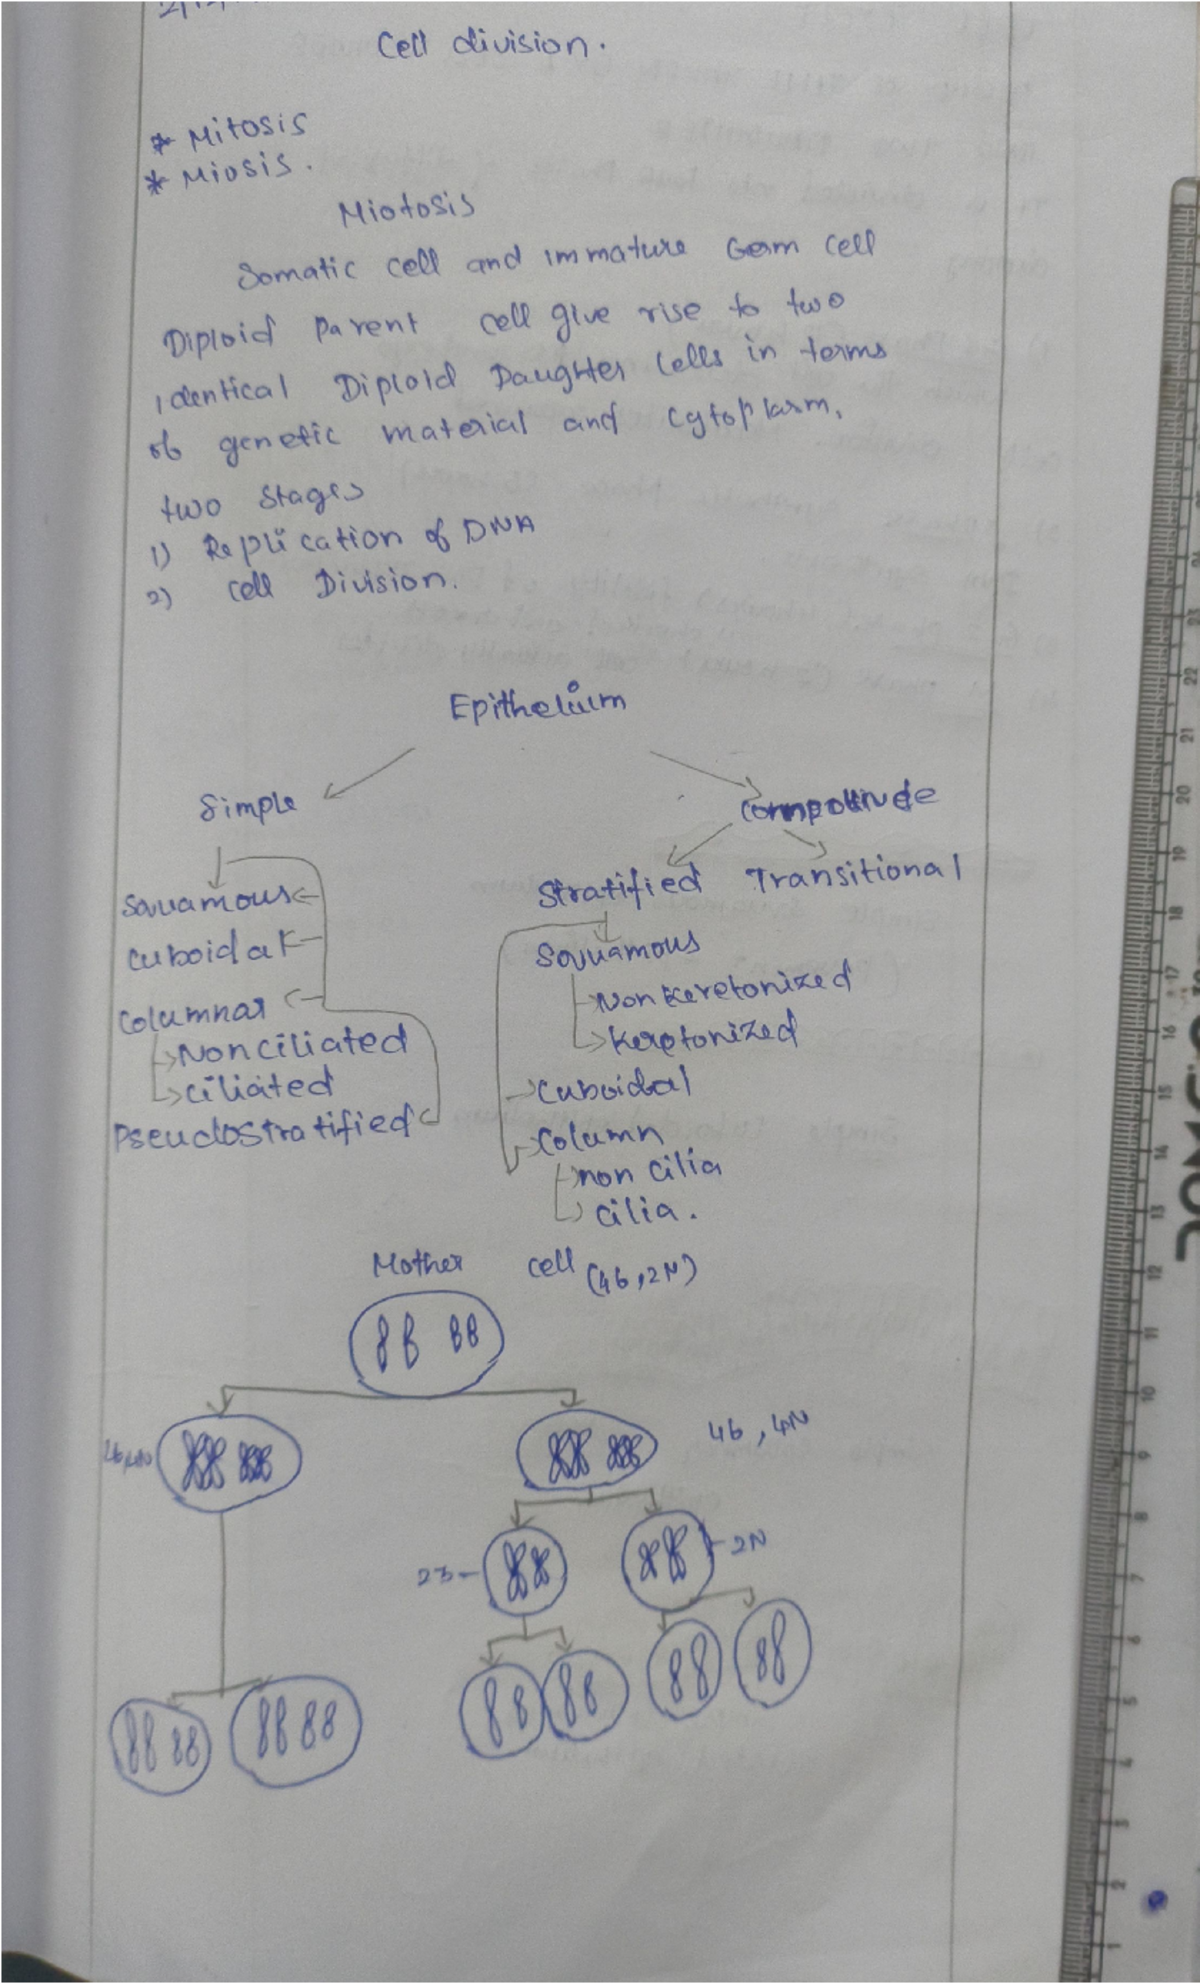 Cell division.
* Mitosis
* Miosis.
Miotosis
Somatic cell and immature Germ cell
Diploid Parent cell give rise to two
identical Diploid Daughter Cells in terms
of genetic material and Cytoplasm,
two stages
1) Replication of DNA
2) Cell Division.
Epitheluim
Simple
Squamous
Cuboidal
Columnar
Nonciliated
Ciliated
Pseudostratified
Stratified Transitional
Squamous
Non Keretonized
Keretonized
Cuboidal
Column
non cilia
cilia.
Mother cell (46,2N)
46, 4N
23
2N
1 2 3 4 5 6 7 8 9 10 11 12 13 14 15 16 17 18 19 20 21 22 23